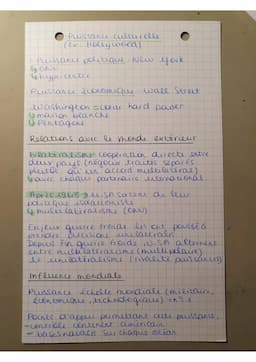 Puissance culturelle
(Ex: Hollywood)
Puissance politique: New York
↳ ONU
↳ hypercentre
Puissance économique: Wall Street
Washington = coeur hard power
↳ maison blanche
↳ Pentagone
Relations avec le monde extérieur
Bilatéralisme: coopération directe entre
deux pays (négocie traités séparés
plutôt qu'un accord multilatéral)
avec chaque partenaire international.
Après 1945: USA sortent de leur
politique isolationniste
↳ multilatéralisme (ONU)
Enjeux guerre froide les ont poussés à
prendre décisions unilatérales
Depuis fin guerre froide, USA alternent
entre multilatéralisme (multipolaire)
le unilatéralisme (rivalité puissances)
Influence mondiale
Puissance échelle mondiale (militaire,
économique, technologique) = n°1
Points d'appui permettant cette puissance:
- contrôle continent américain
- bases navales sur chaque océan